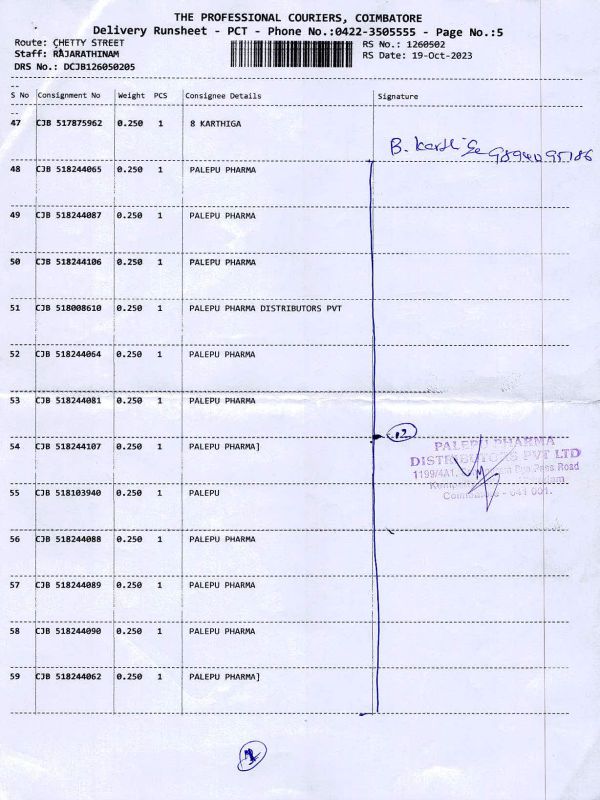 THE PROFESSIONAL COURIERS, COIMBATORE
Delivery Runsheet - PCT - Phone No.:0422-3505555 - Page No.:5
Route: CHETTY STREET RS No.: 1260502
Staff: RAJARATHINAM RS Date: 19-Oct-2023
DRS No.: DCJB126050205
S No Consignment No Weight PCS Consignee Details Signature
47 CJB 517875962 0.250 1 8 KARTHIGA
B. 9894095186
48 CJB 518244065 0.250 1 PALEPU PHARMA
49 CJB 518244087 0.250 1 PALEPU PHARMA
50 CJB 518244106 0.250 1 PALEPU PHARMA
51 CJB 518008610 0.250 1 PALEPU PHARMA DISTRIBUTORS PVT
52 CJB 518244064 0.250 1 PALEPU PHARMA
53 CJB 518244081 0.250 1 PALEPU PHARMA
12
54 CJB 518244107 0.250 1 PALEPU PHARMA]
PALEPU PHARMA
DISTRIBUTORS PVT LTD
1199/4A1, Bye Pass Road
Coimbatore - 641 001.
55 CJB 518103940 0.250 1 PALEPU
56 CJB 518244088 0.250 1 PALEPU PHARMA
57 CJB 518244089 0.250 1 PALEPU PHARMA
58 CJB 518244090 0.250 1 PALEPU PHARMA
59 CJB 518244062 0.250 1 PALEPU PHARMA]